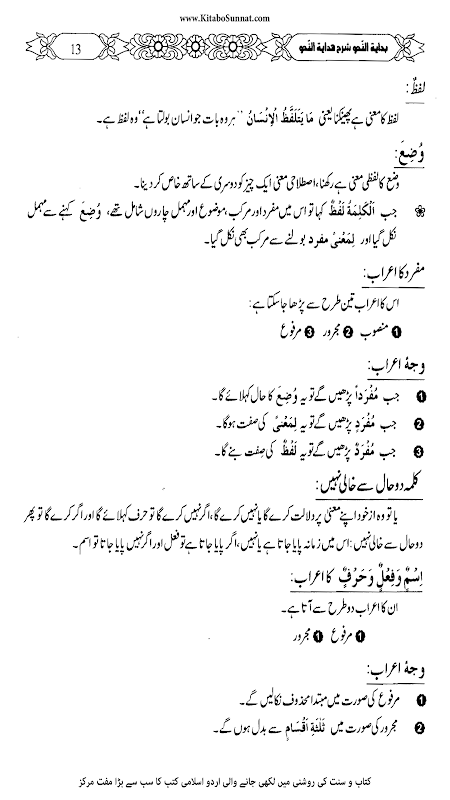 www.KitaboSunnat.com
بداية النحو شرح هداية النحو
13
لفظٌ:
لفظ کا معنی ہے پھینکنا یعنی مَا يَتَلَفَّظُ الْإِنْسَانُ ”ہر وہ بات جو انسان بولتا ہے“ وہ لفظ ہے۔
وُضِعَ:
وضع کا لفظی معنی ہے رکھنا، اصطلاحی معنی ایک چیز کو دوسری کے ساتھ خاص کر دینا۔
جب اَلْكَلِمَةُ لَفْظٌ کہا تو اس میں مفرد اور مرکب، موضوع اور مہمل چاروں شامل تھے، وُضِعَ کہنے سے مہمل
نکل گیا اور لِمَعْنًى مفرد بولنے سے مرکب بھی نکل گیا۔
مفرد کا اعراب:
اس کا اعراب تین طرح سے پڑھا جا سکتا ہے:
❶ منصوب ❷ مجرور ❸ مرفوع
وجۂ اعراب:
❶ جب مُفْرَداً پڑھیں گے تو یہ وُضِعَ کا حال کہلائے گا۔
❷ جب مُفْرَدٍ پڑھیں گے تو یہ لِمَعْنًى کی صفت ہوگا۔
❸ جب مُفْرَدٌ پڑھیں گے تو یہ لَفْظٌ کی صفت بنے گا۔
کلمہ دو حال سے خالی نہیں:
یا تو وہ از خود اپنے معنی پر دلالت کرے گا یا نہیں کرے گا، اگر نہیں کرے گا تو حرف کہلائے گا اور اگر کرے گا تو پھر
دو حال سے خالی نہیں: اس میں زمانہ پایا جاتا ہے یا نہیں، اگر پایا جاتا ہے تو فعل اور اگر نہیں پایا جاتا تو اسم۔
اِسْمٌ وَفِعْلٌ وَحَرْفٌ کا اعراب:
ان کا اعراب دو طرح سے آتا ہے۔
❶ مرفوع ❶ مجرور
وجۂ اعراب:
❶ مرفوع کی صورت میں مبتدا محذوف نکالیں گے۔
❷ مجرور کی صورت میں ثَلٰثَةِ اَقْسَامٍ سے بدل ہوں گے۔
کتاب و سنت کی روشنی میں لکھی جانے والی اردو اسلامی کتب کا سب سے بڑا مفت مرکز